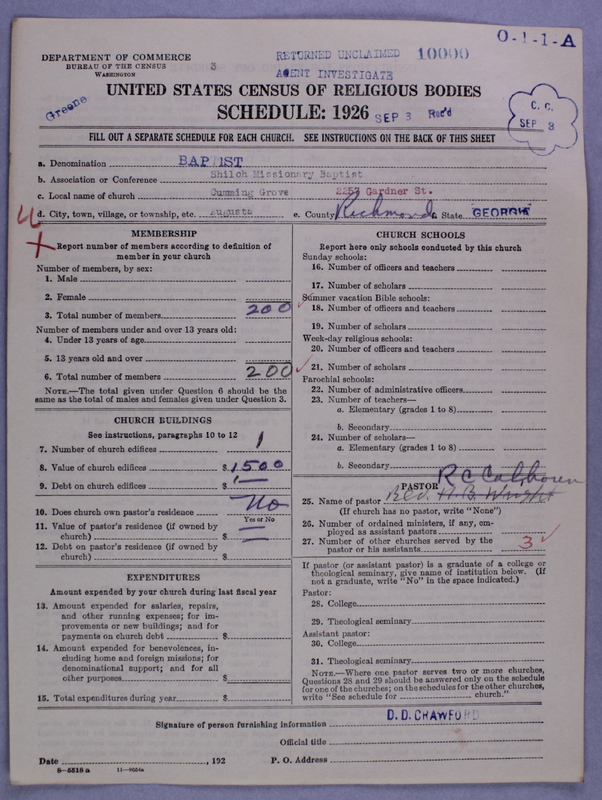 O-1-1-A
DEPARTMENT OF COMMERCE
BUREAU OF THE CENSUS
WASHINGTON
3
RETURNED UNCLAIMED 10000
AGENT INVESTIGATE
UNITED STATES CENSUS OF RELIGIOUS BODIES
Greene
SCHEDULE: 1926 SEP 3 Rec'd
C. C.
SEP 3
FILL OUT A SEPARATE SCHEDULE FOR EACH CHURCH. SEE INSTRUCTIONS ON THE BACK OF THIS SHEET
a. Denomination BAPTIST
b. Association or Conference Shiloh Missionary Baptist
c. Local name of church Cumming Grove 2253 Gardner St.
d. City, town, village, or township, etc. Augusta e. County Richmond f. State GEORGIA
MEMBERSHIP
Report number of members according to definition of
member in your church
Number of members, by sex:
1. Male
2. Female
3. Total number of members 200
Number of members under and over 13 years old:
4. Under 13 years of age
5. 13 years old and over
6. Total number of members 200
NOTE.—The total given under Question 6 should be the
same as the total of males and females given under Question 3.
CHURCH BUILDINGS
See instructions, paragraphs 10 to 12
7. Number of church edifices 1
8. Value of church edifices $ 1500
9. Debt on church edifices $
10. Does church own pastor's residence No
Yes or No
11. Value of pastor's residence (if owned by
church) $
12. Debt on pastor's residence (if owned by
church) $
EXPENDITURES
Amount expended by your church during last fiscal year
13. Amount expended for salaries, repairs,
and other running expenses; for im-
provements or new buildings; and for
payments on church debt $
14. Amount expended for benevolences, in-
cluding home and foreign missions; for
denominational support; and for all
other purposes $
15. Total expenditures during year $
CHURCH SCHOOLS
Report here only schools conducted by this church
Sunday schools:
16. Number of officers and teachers
17. Number of scholars
Summer vacation Bible schools:
18. Number of officers and teachers
19. Number of scholars
Week-day religious schools:
20. Number of officers and teachers
21. Number of scholars
Parochial schools:
22. Number of administrative officers
23. Number of teachers—
a. Elementary (grades 1 to 8)
b. Secondary
24. Number of scholars—
a. Elementary (grades 1 to 8)
b. Secondary
PASTOR R C Calhoun
25. Name of pastor Rev. H. B. Wright
(If church has no pastor, write "None")
26. Number of ordained ministers, if any, em-
ployed as assistant pastors
27. Number of other churches served by the
pastor or his assistants 3
If pastor (or assistant pastor) is a graduate of a college or
theological seminary, give name of institution below. (If
not a graduate, write "No" in the space indicated.)
Pastor:
28. College
29. Theological seminary
Assistant pastor:
30. College
31. Theological seminary
NOTE.—Where one pastor serves two or more churches,
Questions 28 and 29 should be answered only on the schedule
for one of the churches; on the schedules for the other churches,
write "See schedule for church."
Signature of person furnishing information D. D. CRAWFORD
Official title
Date , 192 P. O. Address
8-5518a 11-9054a